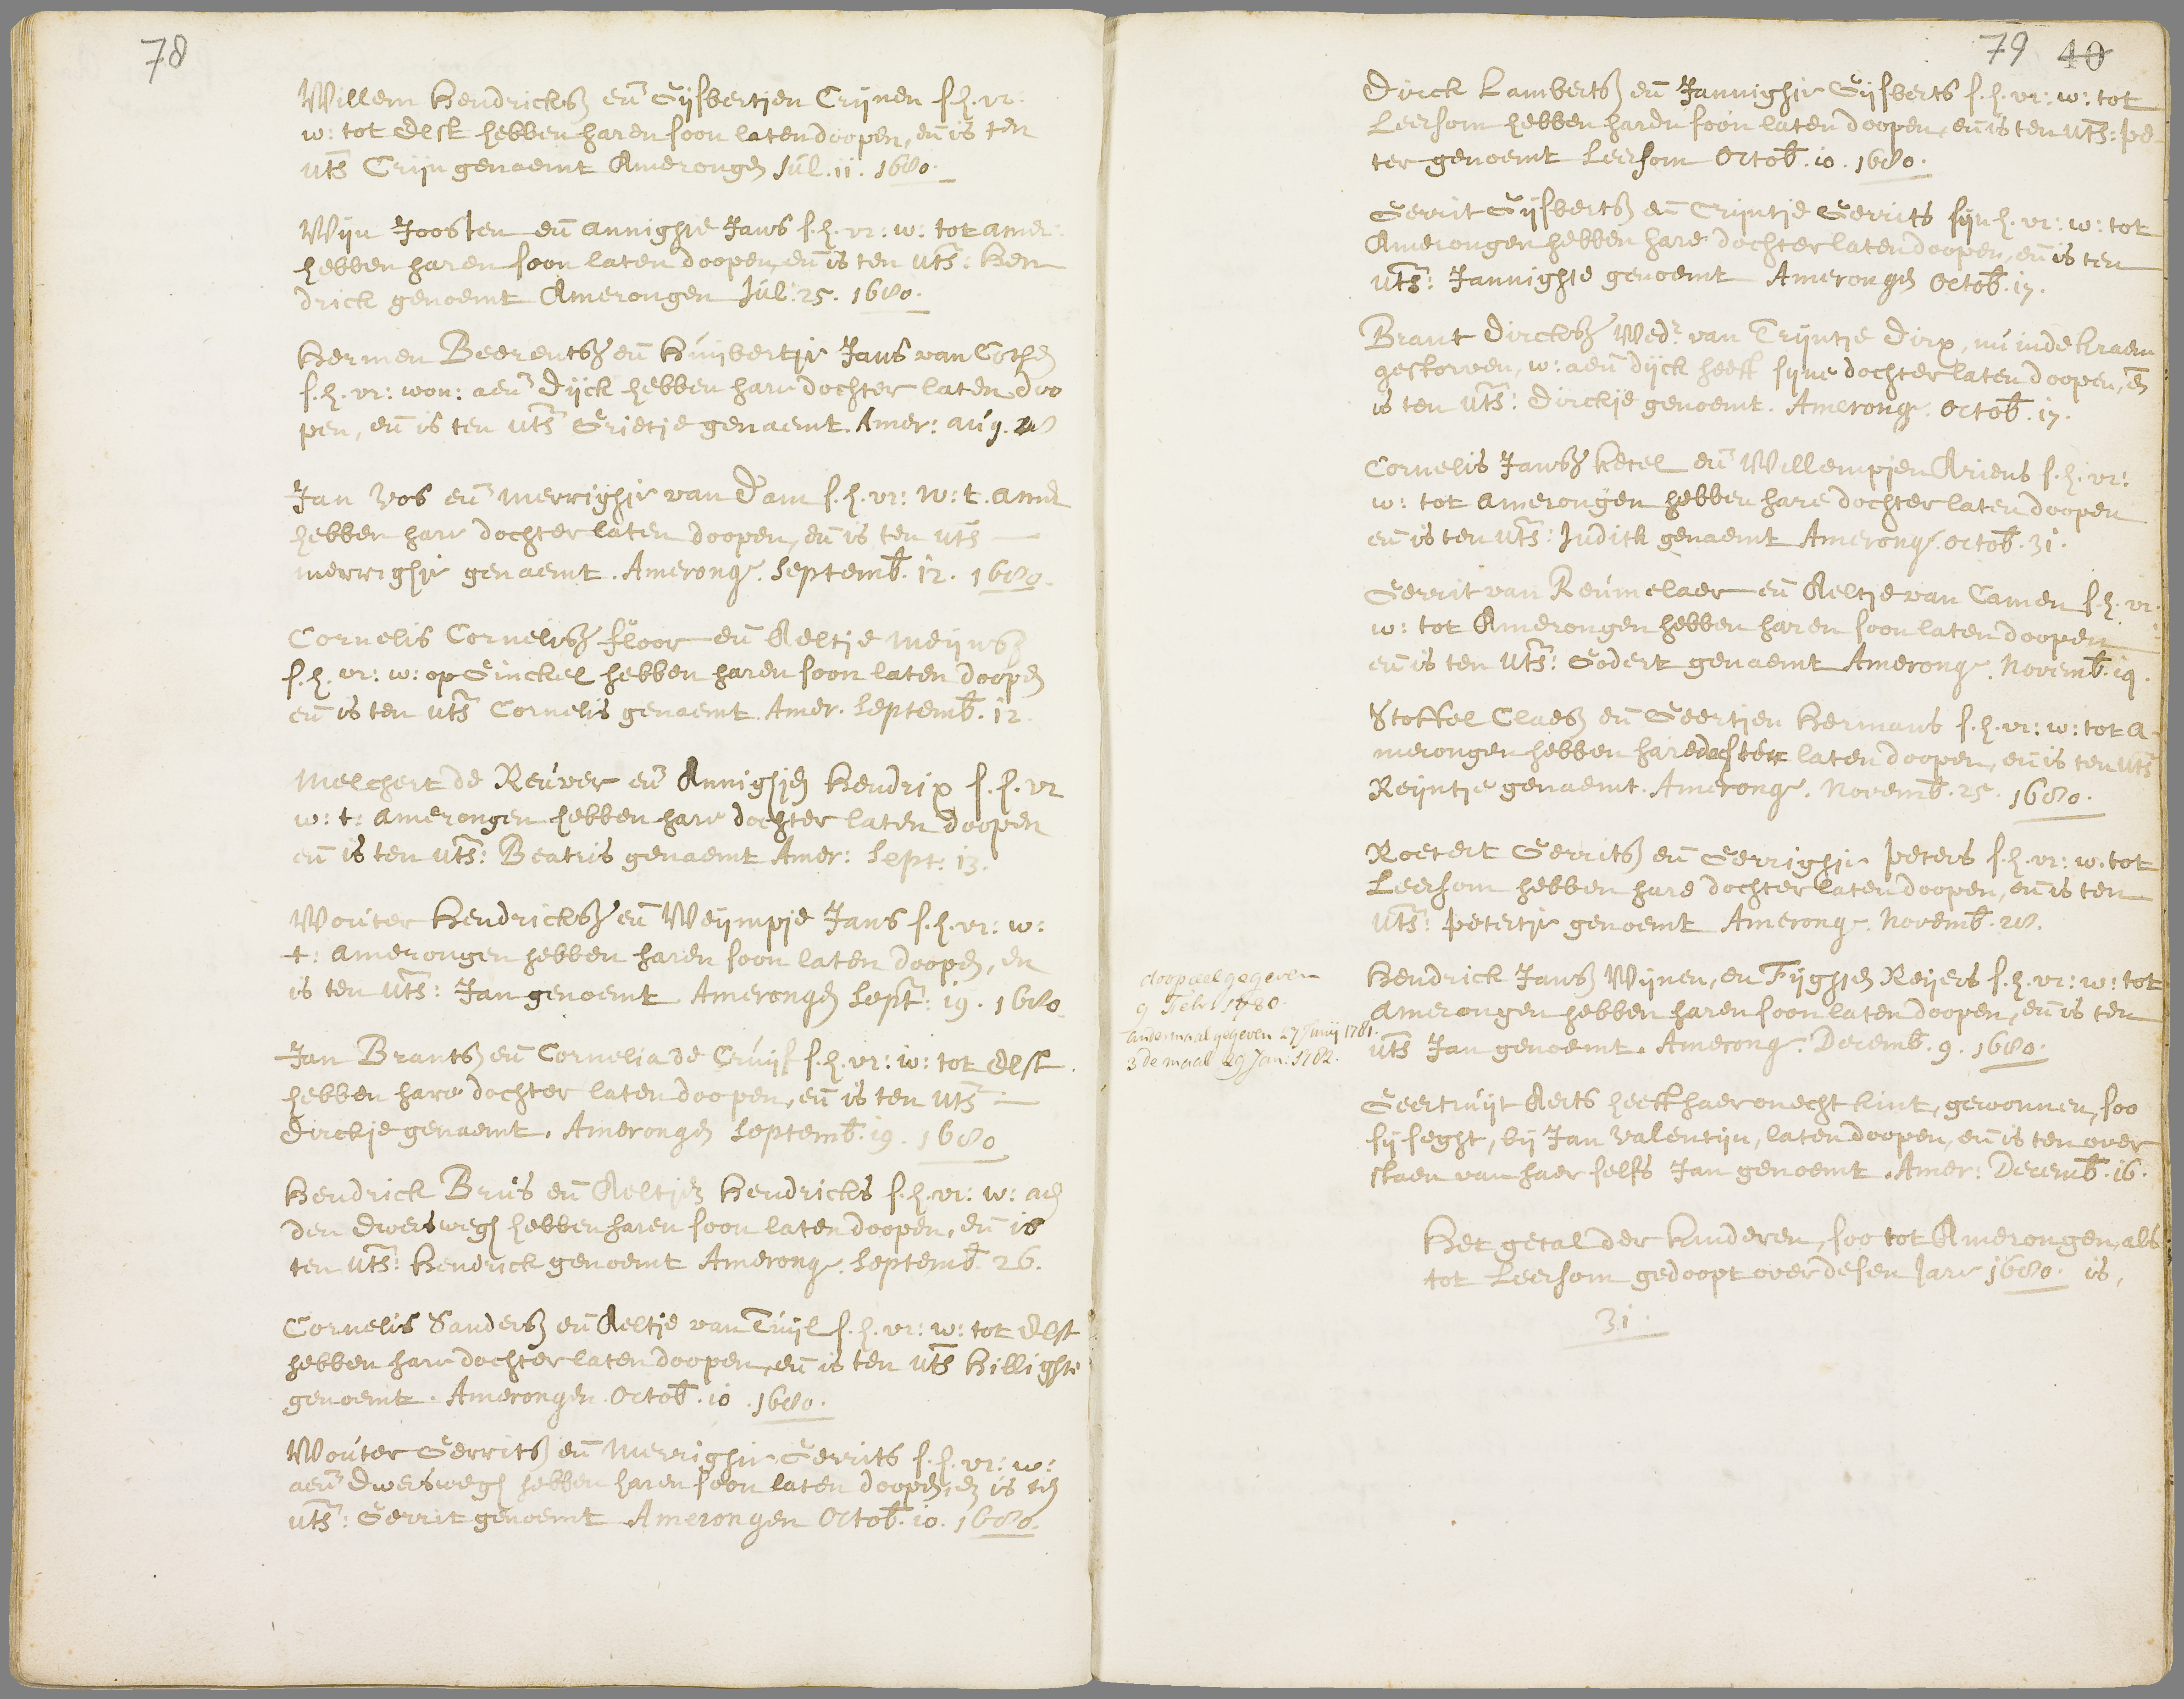 78
Willem Hendricksz eñ Gijsbertjen Crijnen s.h.vr:
w: tot Elst hebben haren soon laten doopen, eñ is ten
uts Crijn genaemt Amerongen Jul. 11. 1680.
Wijn Joosten eñ Annighie Jans s.h.vr: w: tot Amer:
hebben haren soon laten doopen, eñ is ten uts: Hen
drick genoemt Amerongen Jul: 25. 1680.
Hermen Beerentsz eñ Huijbertje Jans van Cothen
s.h.vr: won: aen Dijck hebben hare dochter laten doo
pen, eñ is ten uts Grietje genaemt. Amer: aug.
Jan Vos eñ Merrighje van Dam s.h.vr: w: t. Ame
hebben hare dochter laten doopen, eñ is ten uts
Merrighje genaemt. Amerong. Septemb. 12. 1680.
Cornelis Cornelisz floor eñ Aeltje Meijnsz
s.h.vr: w: op Ginckel hebben haren soon laten doopen
eñ is ten uts Cornelis genaemt. Amer. Septemb. 12.
Melchert de Reuver eñ Annighjen Hendrix s.h.vr
w: t: Amerongen hebben hare dochter laten doopen
eñ is ten uts: Beatris genaemt Amer: Sept: 13.
Wouter Hendricksz eñ Weijmpje Jans s.h.vr: w:
t: Amerongen hebben haren soon laten doopen, en
is ten uts: Jan genoemt Amerongen Sept: 19. 1680
Jan Brantsz eñ Cornelia de Cruijf s.h.vr: w: tot Elst.
hebben hare dochter laten doopen, eñ is ten uts
Dirckje genaemt. Amerongen Septemb. 19. 1680
Hendrick Brus eñ Aeltjen Hendricks s.h.vr: w: aen
den Dwerswegh hebben haren soon laten doopen, eñ is
ten uts: Hendrick genoemt Amerong. Septemb. 26.
Cornelis Sandersz eñ Aeltje van Tuijl s.h.vr: w: tot Elst
hebben hare dochter laten doopen, eñ is ten uts Hillighie
genoemt. Amerongen. Octob. 10. 1680.
Wouter Gerritsz eñ Merrighie Gerrits s.h.vr: w:
aen Dwerswegh hebben haren soon laten doopen, en is ten
uts: Gerrit genoemt Amerongen Octob. 10. 1680.
79 40
Dirck Lambertsz eñ Jannighie Gijsberts s.h.vr: w: tot
Leersom hebben haren soon laten doopen, eñ is ten uts: Pe
ter genoemt Leersom Octob. 10. 1680.
Gerrit Gijsbertsz eñ Crijntje Gerrits sijn h.vr: w: tot
Amerongen hebben hare dochter laten doopen, eñ is ten
uts: Jannighie genoemt Amerongen Octob. 17.
Brant Dircksz Wedr van Trijntje Dirx, nu inde kraem
gestorven, w: aen dijck heeft sijne dochter laten doopen, eñ
is ten uts: Dirckje genoemt. Amerong. Octob. 17.
Cornelis Jansz Ketel eñ Willempjen Ariens s.h.vr:
w: tot Amerongen hebben hare dochter laten doopen
eñ is ten uts: Judith genaemt Amerong. Octob. 31.
Gerrit van Reumelaer eñ Aeltje van Camen s.h.vr:
w: tot Amerongen hebben haren soon laten doopen
eñ is ten uts: Godert genaemt Amerong. Novemb. 19.
Stoffel Claesz eñ Geertjen Hermans s.h.vr: w: tot A-
merongen hebben hare dochter laten doopen, eñ is ten uts
Reijntje genaemt. Amerong. Novemb. 25. 1680.
Roetert Gerritsz eñ Gerrighie Peters s.h.vr: w: tot
Leersom hebben hare dochter laten doopen, eñ is ten
uts: Petertje genoemt Amerong. Novemb. 28.
doopceel gegeven
9 Feb. 1780.
andermaal gegeven 27 Junij 1781.
3de maal 29 Jan: 1782.
Hendrick Jansz Wijnen, en Fijghjen Reijers s.h.vr: w: tot
Amerongen hebben haren soon laten doopen, eñ is ten
uts Jan genoemt. Amerong. Decemb. 9. 1680.
Geertruijt Aerts heeft haer onecht kint, gewonnen, soo
sij seght, bij Jan Valentijn, laten doopen, eñ is ten over
staen van haer selfs Jan genoemt. Amer: Decemb. 16.
Het getal der kinderen, soo tot Amerongen, als
tot Leersom gedoopt over desen Jare 1680. is,
31.